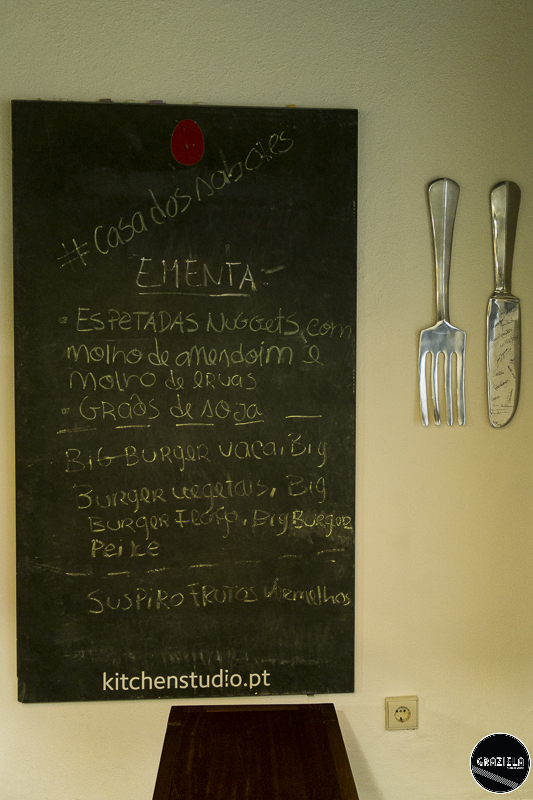 #casa dos sabores
EMENTA:-
• ESPETADAS NUGGETS, com
molho de amendoim e
molho de ervas
• GRÃOS de soja
BIG BURGER vaca, Big
Burger vegetais, Big
Burger Frango, Big Burger
Peixe
SUSPIRO FRUTOS vermelhos
kitchenstudio.pt
GRAZIELA